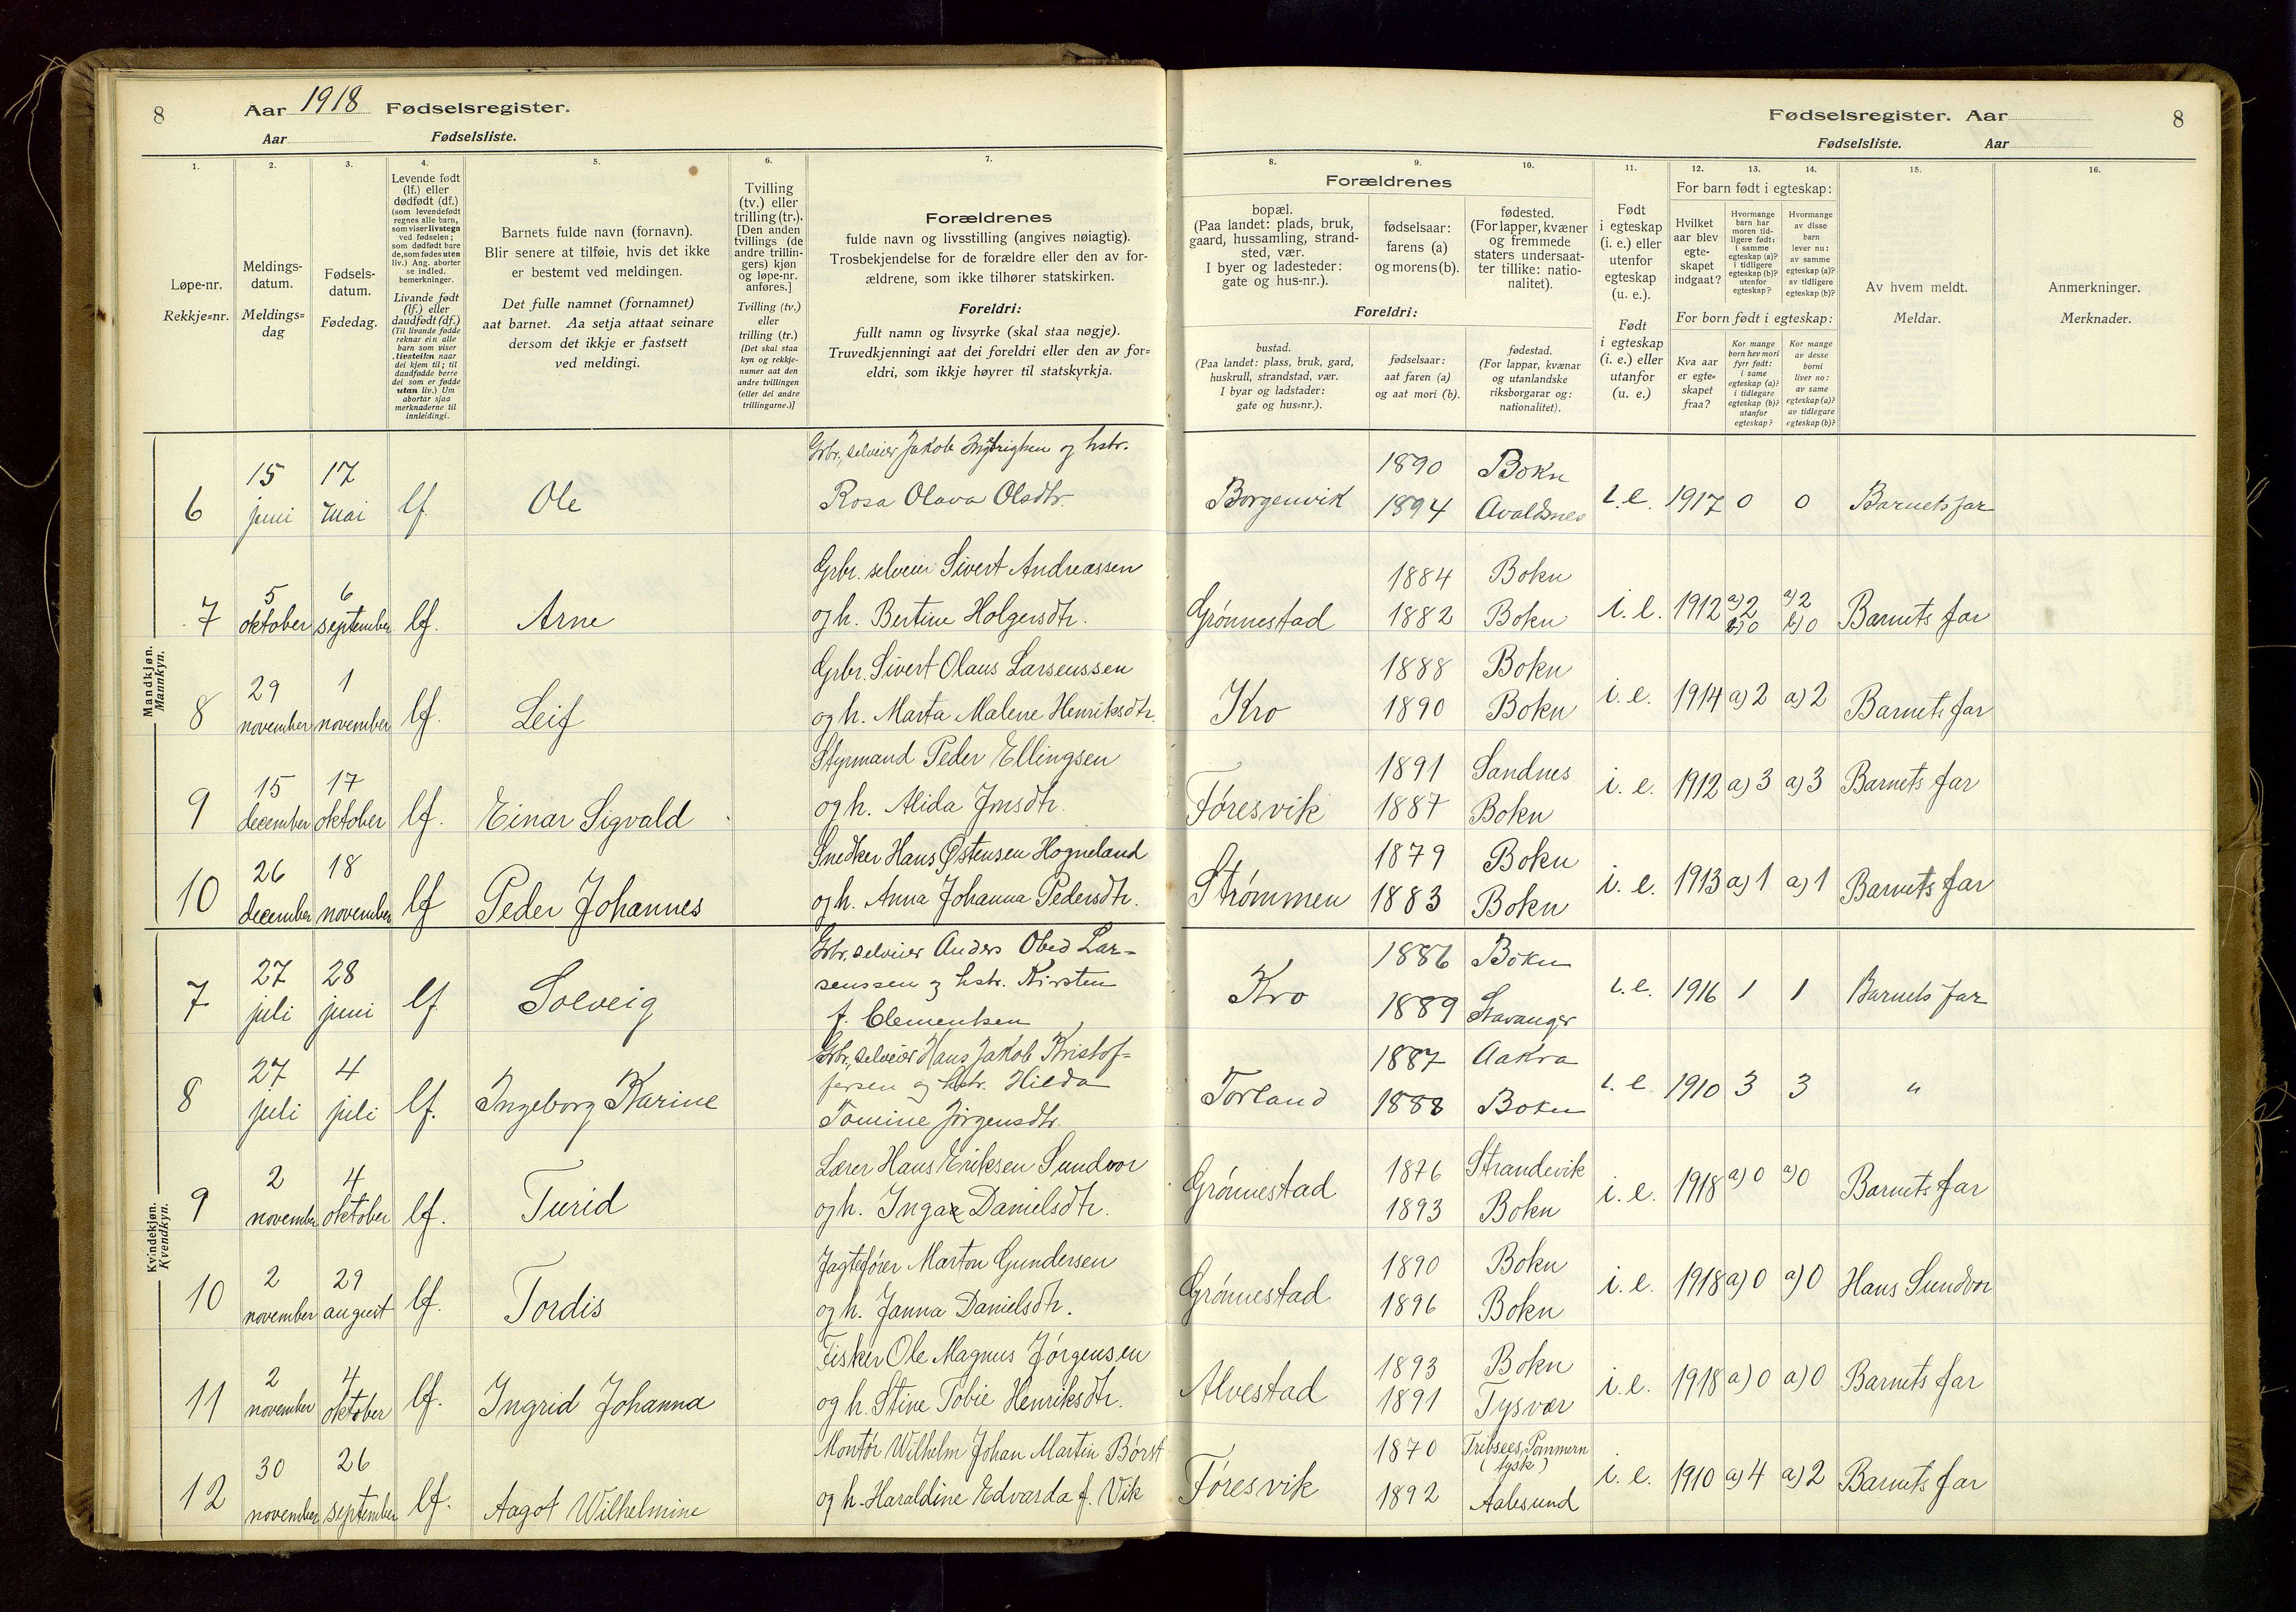 8
Aar 1918 Fødselsregister.
Aar Fødselsliste.
1.
2.
3.
4.
5.
6.
7.
Løpe-nr.
Rekkje=nr.
Meldings-
datum.
Meldings=
dag
Fødsels-
datum.
Fødedag.
Levende født
(lf.) eller
dødfødt (df.)
(som levendefødt
regnes alle barn,
som viser livstegn
ved fødselen;
som dødfødt bare
de, som fødes uten
liv.) Ang. aborter
se indled.
bemerkninger.
Livande født
(lf.) eller
daudfødt (df.)
(Til livande fødde
reknar ein alle
barn som viser
livsteikn naar
dei kjem til; til
daudfødde berre
dei som er fødde
utan liv.) Um
abortar sjaa
merknaderne til
innleidingi.
Barnets fulde navn (fornavn).
Blir senere at tilføie, hvis det ikke
er bestemt ved meldingen.
Det fulle namnet (fornamnet)
aat barnet. Aa setja attaat seinare
dersom det ikkje er fastsett
ved meldingi.
Tvilling
(tv.) eller
trilling (tr.).
[Den anden
tvillings (de
andre trillin-
gers) kjøn
og løpe-nr.
anføres.]
Tvilling (tv.)
eller
trilling (tr.)
[Det skal staa
kyn og rekkje-
numer aat den
andre tvillingen
(eller dei andre
trillingarne.)]
Forældrenes
fulde navn og livsstilling (angives nøiagtig).
Trosbekjendelse for de forældre eller den av for-
ældrene, som ikke tilhører statskirken.
Foreldri:
fullt namn og livsyrke (skal staa nøgje).
Truvedkjenningi aat dei foreldri eller den av for=
eldri, som ikkje høyrer til statskyrkja.
Mandkjøn.
Mannkyn.
6 15 juni 17 mai lf. Ole
Grbr, selveier Jakob og hstr.
Rosa Olava Olsdtr.
7 5 oktober 6 september lf. Arne
Grbr. selveier Sivert Andreassen
og h. Bertine Holgersdtr.
8 29 november 1 november lf. Leif
Grbr. Sivert Olaus Larsenssen
og h. Marta Malene Henriksdtr.
9 15 december 17 oktober lf. Einar Sigvald
Styrmand Peder Ellingsen
og h. Alida Jonsdtr.
10 26 december 18 november lf Peder Johannes
Snedker Hans Østensen Hogneland
og h. Anna Johanna Pedersdtr.
Kvindekjøn.
Kvendkyn.
7 27 juli 28 juni lf. Solveig
Grbr, selveier Anders Obed Lar-
senssen og hstr. Kirsten
f. Clementsen
8 27 juli 4 juli lf. Ingeborg Karine
Grbr, selveier Hans Jakob Kristof-
fersen og hstr. Hilda
Tomine Jørgensdtr.
9 2 november 4 oktober lf. Turid
Lærer Hans Eriksen Sundvor
og h. Inga Danielsdtr.
10 2 november 29 august lf. Tordis
Jagtefører Marton Gundersen
og h. Janna Danielsdtr.
11 2 november 4 oktober lf. Ingrid Johanna
Fisker Ole Magnus Jørgensen
og h. Stine Tobie Henriksdtr.
12 30 november 26 september lf. Aagot Wilhelmine
Montør Wilhelm Johan Martin Börst
og h. Haraldine Edvarda f. Vik
Fødselsregister. Aar 8
Fødselsliste. Aar
8.
9.
10.
11.
12.
13.
14.
15.
16.
Forældrenes
bopæl.
(Paa landet: plads, bruk,
gaard, hussamling, strand-
sted, vær.
I byer og ladesteder:
gate og hus-nr.).
fødselsaar:
farens (a)
og morens (b).
fødested.
(For lapper, kvæner
og fremmede
staters undersaat-
ter tillike: natio-
nalitet).
Foreldri:
bustad.
(Paa landet: plass, bruk, gard,
huskrull, strandstad, vær.
I byar og ladstader:
gate og hus=nr.).
fødselsaar:
aat faren (a)
og aat mori (b).
fødestad.
(For lappar, kvænar
og utanlandske
riksborgarar og:
nationalitet).
Født
i egteskap
(i. e.) eller
utenfor
egteskap
(u. e.).
Født
i egteskap
(i. e.) eller
utanfor
(u. e.)
For barn født i egteskap:
Hvilket
aar blev
egte-
skapet
indgaat?
Hvormange
barn har
moren tid-
ligere født:
i samme
egteskap (a)?
i tidligere
egteskap (b)?
utenfor
egteskap?
Hvormange
av disse
barn
lever nu:
av samme
egteskap (a)?
av tidligere
egteskap (b)?
For born født i egteskap:
Kva aar
er egte=
skapet
fraa?
Kor mange
born hev mori
fyrr født:
i same
egteskap (a)?
i tidlegare
egteskap (b)?
utanfor
egteskap?
Kor mange
av desse
borni
liver no:
av same
egteskap (a)?
av tidlegare
egteskap (b)?
Av hvem meldt.
Meldar.
Anmerkninger.
Merknader.
1890 Bokn
Borgenvik 1894 Avaldsnes i.e. 1917 0 0 Barnets far
1884 Bokn
Grønnestad 1882 Bokn i.e. 1912 a) 2 b) 0 a) 2 b) 0 Barnets far
1888 Bokn
Kro 1890 Bokn i.e. 1914 a) 2 a) 2 Barnets far
1891 Sandnes
Føresvik 1887 Bokn i.e. 1912 a) 3 a) 3 Barnets far
1879 Bokn
Strømmen 1883 Bokn i.e. 1913 a) 1 a) 1 Barnets far
1886 Bokn
Kro 1889 Stavanger i.e. 1916 1 1 Barnets far
1887 Aakra
Torland 1888 Bokn i.e. 1910 3 3 "
1876 Strandevik
Grønnestad 1893 Bokn i.e. 1918 a) 0 a) 0 Barnets far
1890 Bokn
Grønnestad 1896 Bokn i.e. 1918 a) 0 a) 0 Hans Sundvor
1893 Bokn
Alvestad 1891 Tysvær i.e. 1918 a) 0 a) 0 Barnets far
1870 Tribsees, Pommern
(tysk)
Føresvik 1892 Aalesund i.e. 1910 a) 4 a) 2 Barnets far